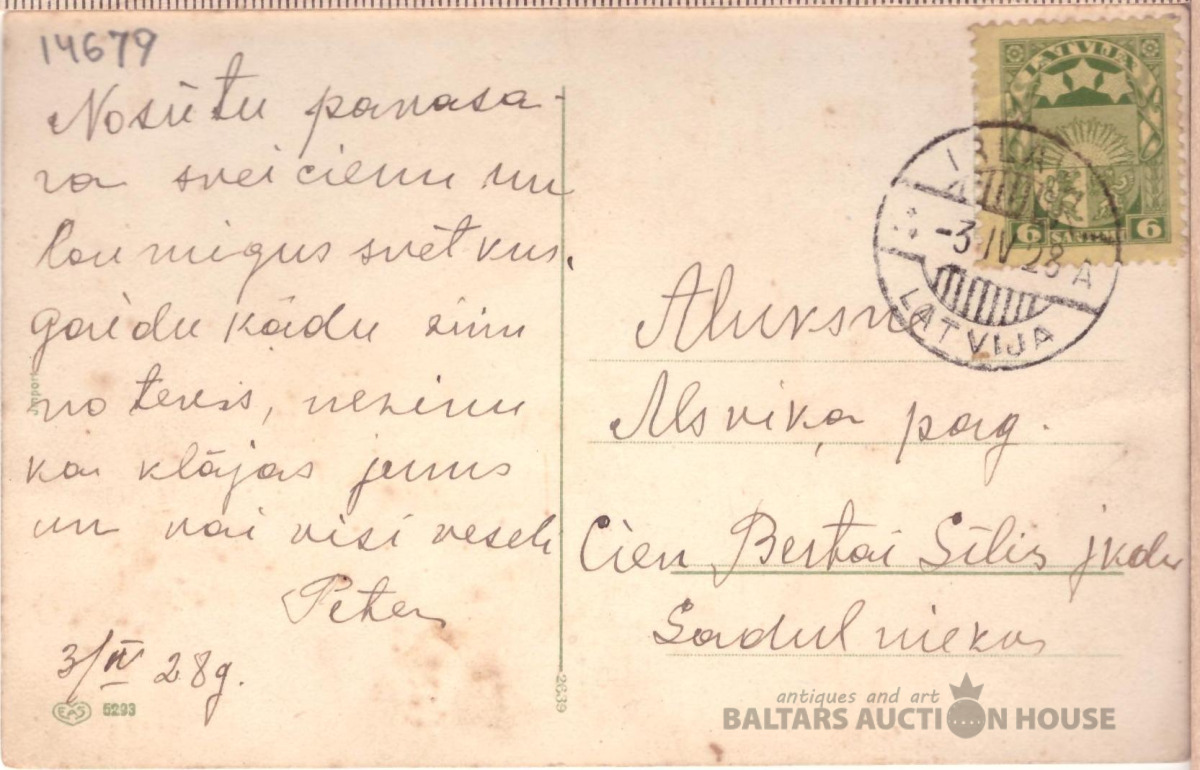 14679
Nosūtu pavasa-
ra sveicienu un
laimigus svētkus,
gaidu kādu ziņu
no tevis, nezinu
ka klājas jums
un vai visi veseli
Peter
3/IV 28g.
EAS 5293
Import
2639
LATVIJA
6 6
SANTIMI
-3 IV 28 A
LATVIJA
Aluksne
Alsviķa pag.
Cien Bertai Silis jkdz
Sadulniekos
antiques and art
BALTARS AUCTION HOUSE